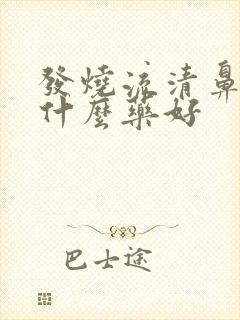 發燒流清鼻
什麼藥好
巴士途